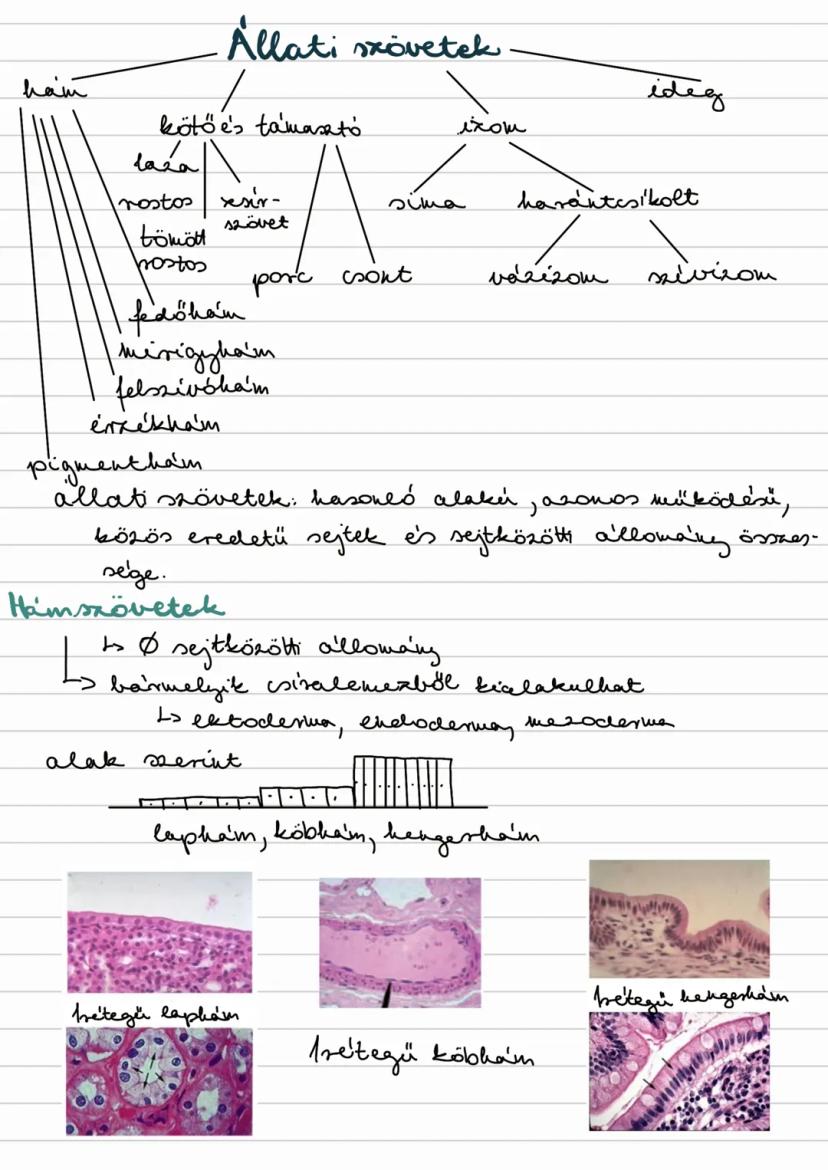 Állati szövetek
hám
ideg
kötő és támasztó
izom
laza
rostos
zsír-
szövet
sima
harántcsíkolt
tömött
rostos
porc
csont
vázizom
szívizom
fedőhám
mirigyhám
felszívóhám
érzékhám
pigmenthám
állati szövetek: hasonló alakú, azonos működésű,
közös eredetű sejtek és sejtközötti állomány összes-
sége.
Hámszövetek
↳ Ø sejtközötti állomány
↳ bármelyik csíralemezből kialakulhat
↳ ektoderma, endoderma, mezoderma
alak szerint
laphám, köbhám, hengerhám
1rétegű laphám
1rétegű köbhám
1rétegű hengerhám